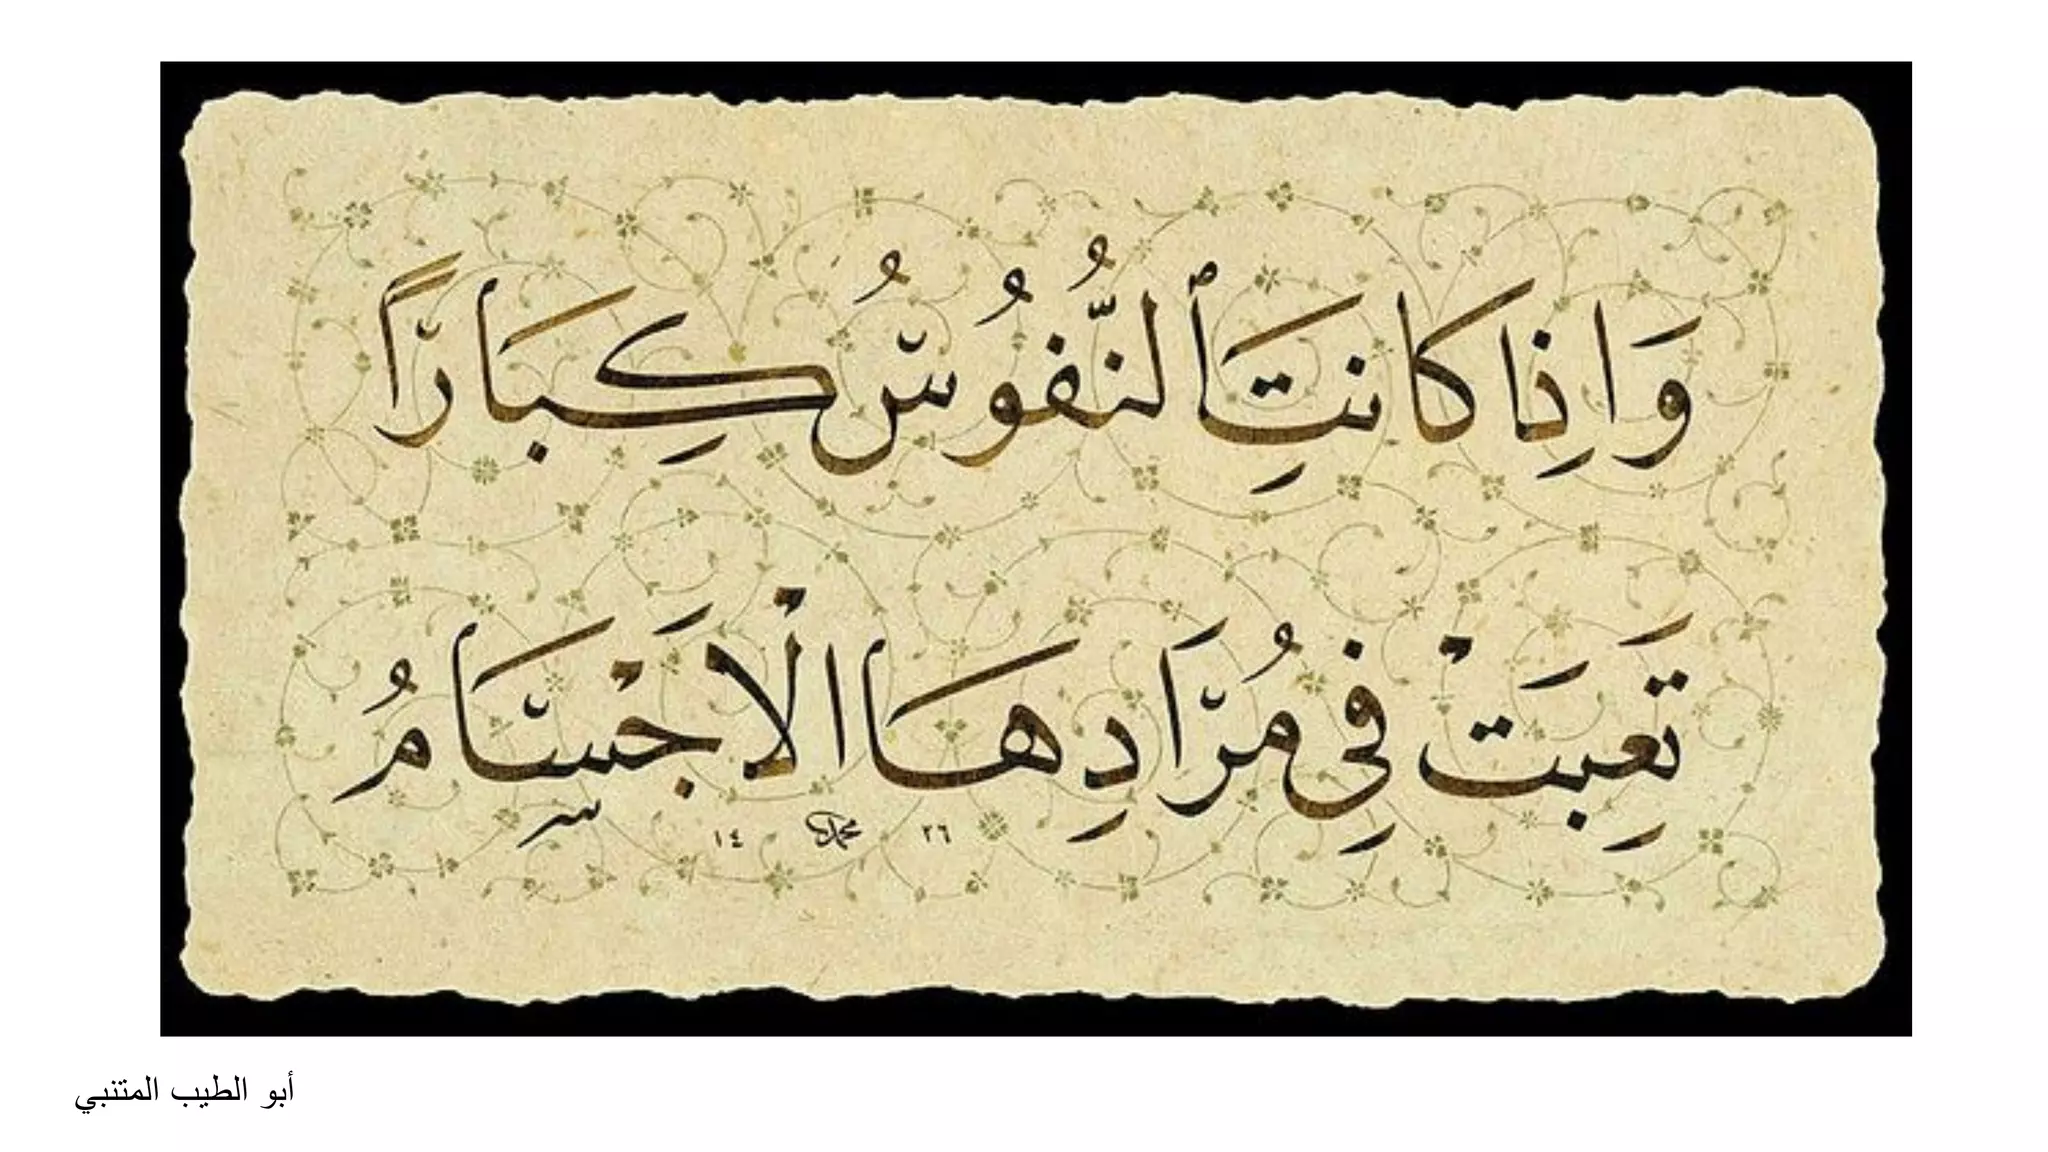 وَاِذَا كَانَتِ ٱلنُّفُوسُ كِبَارًا
تَعِبَتْ فِي مُرَادِهَا الْاَجْسَامُ
١٤ محمد ٢٦
أبو الطيب المتنبي